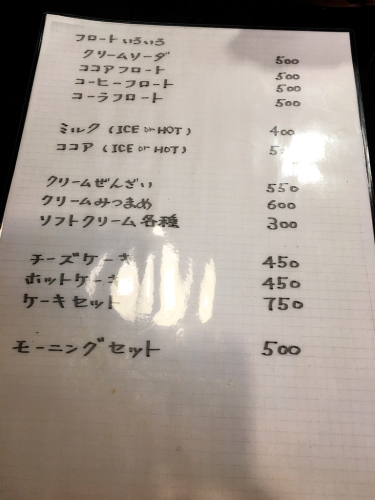 フロートいろいろ
クリームソーダ 500
ココアフロート 500
コーヒーフロート 500
コーラフロート 500
ミルク (ICE or HOT) 400
ココア (ICE or HOT)
クリームぜんざい 550
クリームみつまめ 600
ソフトクリーム各種 300
チーズケーキ 450
ホットケーキ 450
ケーキセット 750
モーニングセット 500